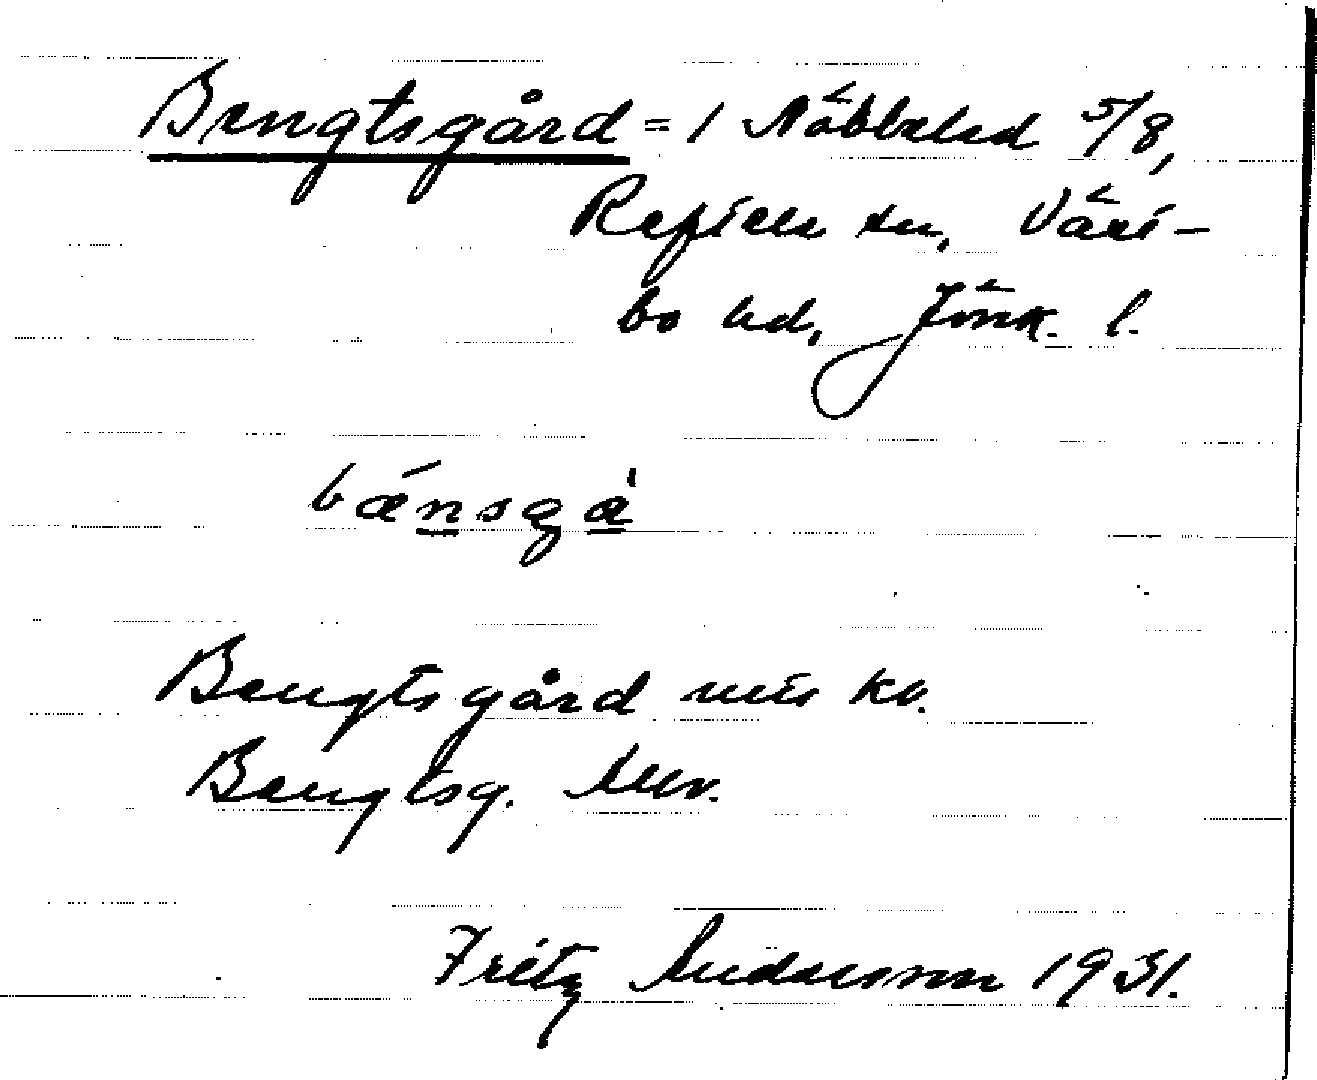 Bengtsgård = 1 Näbbeled 5/8,
Reftele sn, Väst-
bo hd, Jönk. l.
bænsga
Bengtsgård mis kv.
Bengtsg.
Fritz Andersson 1931.